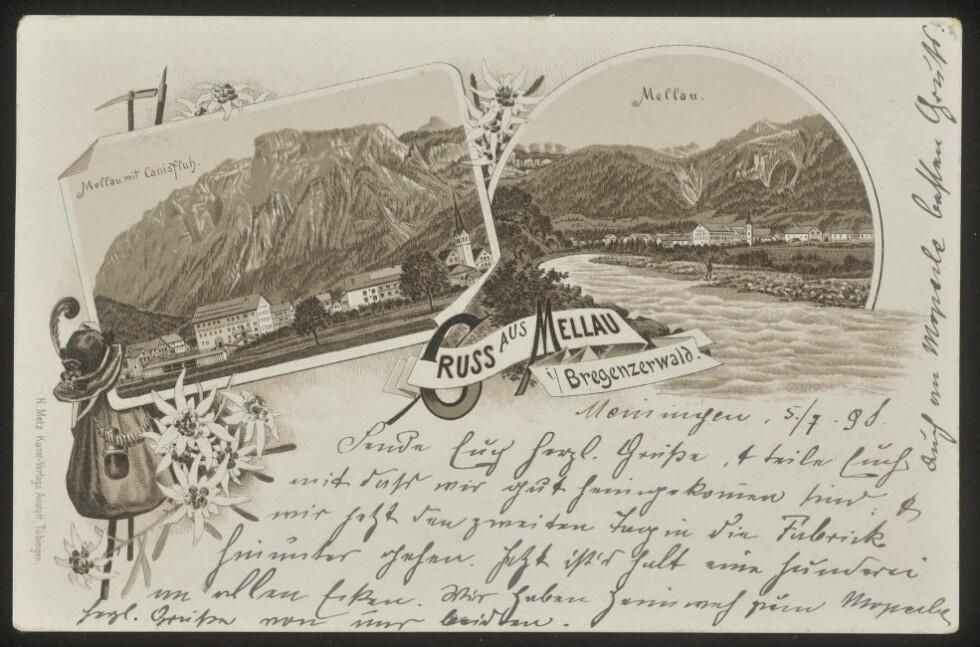 Mellau mit Canisfluh.
Mellau.
GRUSS AUS MELLAU
i/ Bregenzerwald.
H. Metz Kunst-Verlags Anstalt Tübingen.
Meiningen, 5./7. 98.
Sende Euch herzl. Grüße, & teile Euch
mit daß wir gut heimgekomen sind, &
wir jetzt den zweiten Tag in die Fabrick
hinunter gehen. Jetzt ist's halt eine hunderei
an allen Ecken. Wir haben Heimweh zum
herzl. Grüße von uns beiden.
Auch an besten Gruß.